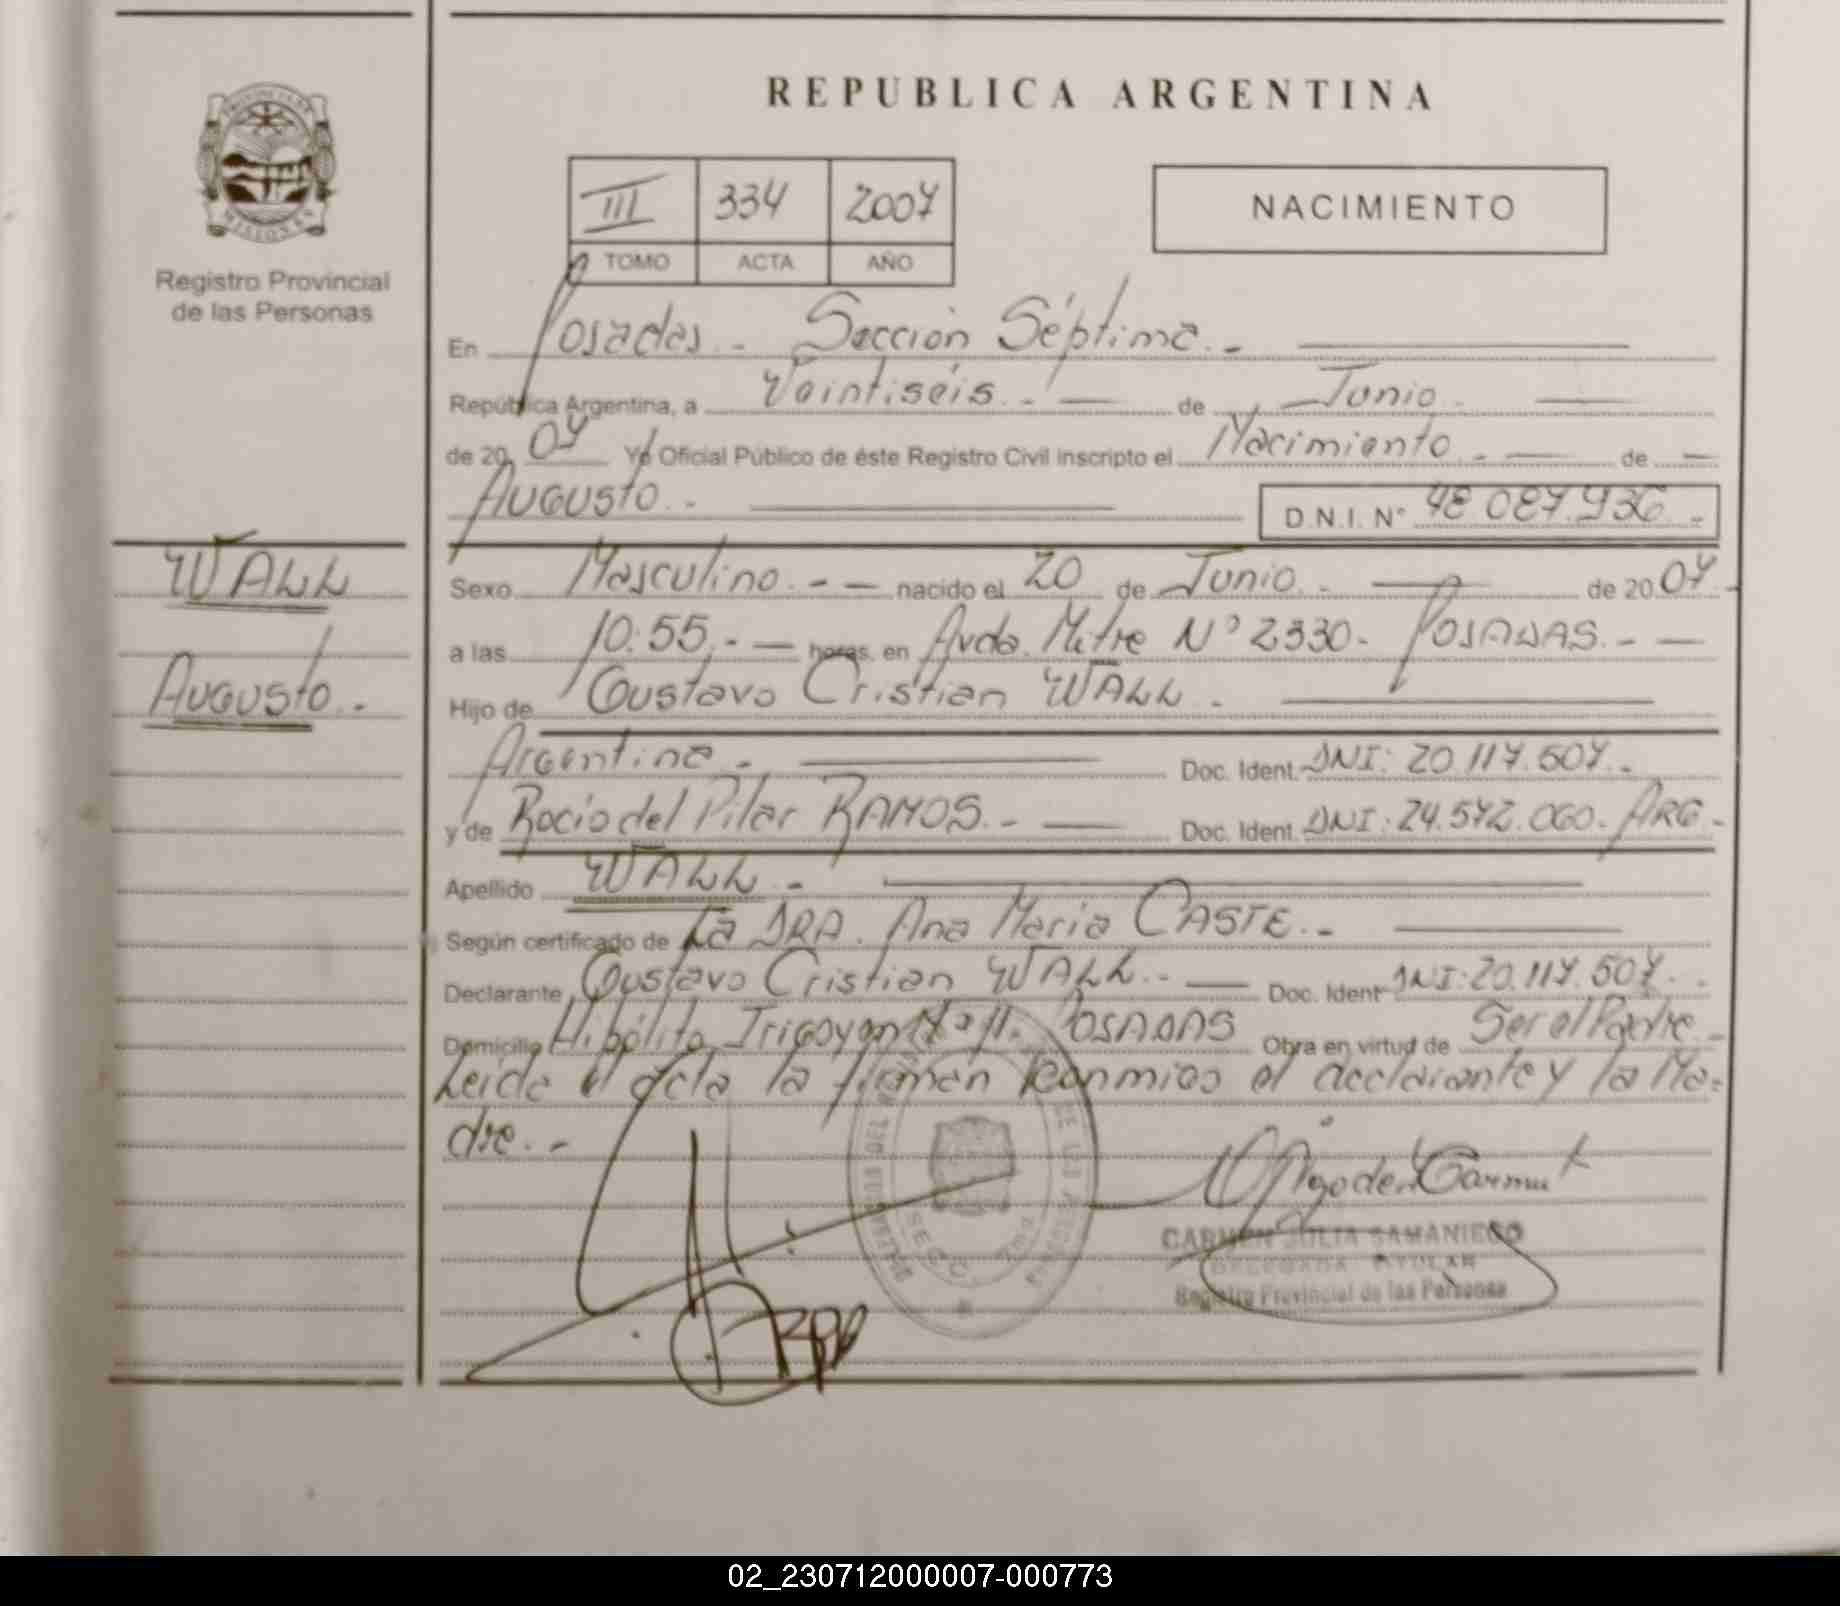 REPUBLICA ARGENTINA
PROVINCIA DE
MISIONES
Registro Provincial
de las Personas
III 334 2007
TOMO ACTA AÑO
NACIMIENTO
En Posadas.- Sección Séptima.-
República Argentina, a Veintiséis.- de Junio.
de 2007 Yo Oficial Público de éste Registro Civil inscripto el Nacimiento.- de
Augusto.-
D.N.I. N° 48.087.936.-
WALL
Augusto.-
Sexo Masculino.- nacido el 20 de Junio.- de 2007.-
a las 10:55.- horas, en Avda. Mitre N° 2330- POSADAS.-
Hijo de Gustavo Cristian WALL.-
Argentina.- Doc. Ident. DNI: 20.117.507.-
y de Rocío del Pilar RAMOS.- Doc. Ident. DNI: 24.572.060- ARG-
Apellido WALL.-
Según certificado de La DRA. Ana María CASTE.-
Declarante Gustavo Cristian WALL.- Doc. Ident DNI: 20.117.507.-
Domicilio Hipólito Irigoyen N° POSADAS Obra en virtud de Ser el Padre.-
Leída el acta la firman conmigo el declarante y la Ma-
dre.-
CARMEN JULIA SAMANIEGO
DELEGADA TITULAR
Registro Provincial de las Personas
02_230712000007-000773